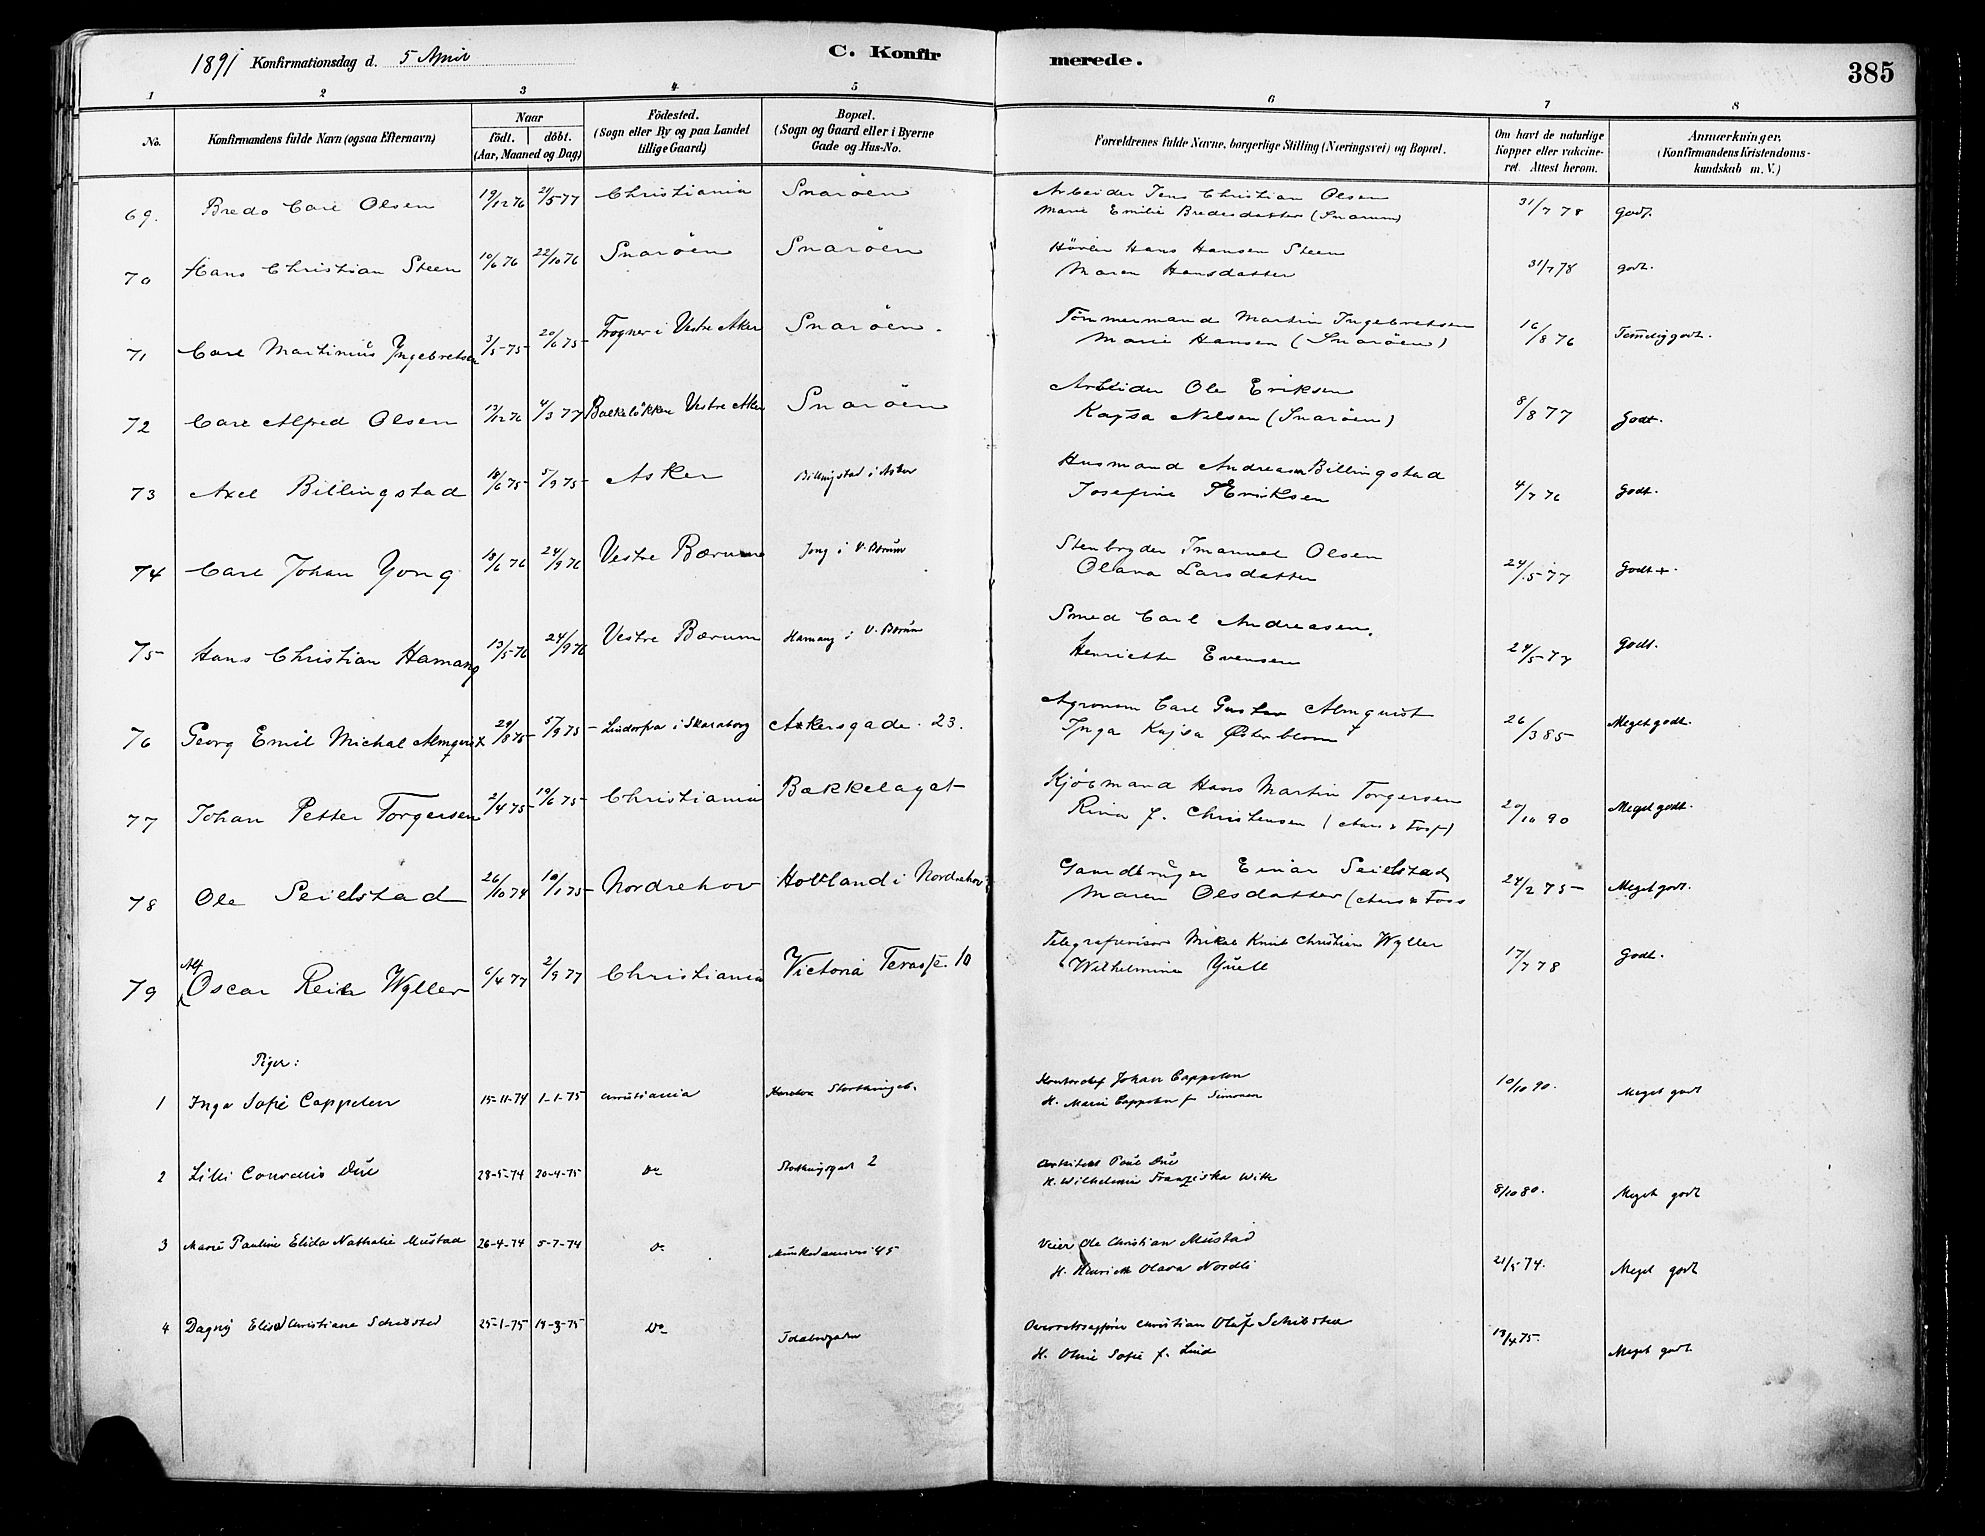 1891 Konfirmationsdag d. 5 April
C. Konfir merede. 385
1 2 3 4 5 6 7 8
No. Konfirmandens fulde Navn (ogsaa Efternavn) Naar födt. döbt. (Aar, Maaned og Dag) Födested. (Sogn eller By og paa Landet tillige Gaard) Bopæl. (Sogn og Gaard eller i Byerne Gade og Hus-No. Forældrenes fulde Navne, borgerlige Stilling (Næringsvei) og Bopæl. Om havt de naturlige Kopper eller vakcineret. Attest herom. Anmærkninger, (Konfirmandens Kristendomskundskab m. V.)
69. Bredo Carl Olsen 19/12 76 21/5 77 Christiania Snaröen Arbeider Jens Christian Olsen 31/7 78 godt.
Marie Emilie Bredesdatter
70 Hans Christian Steen 10/6 76 22/10 76 Snaröen Snaröen Hans Hansen Steen 31/7 78 godt.
Maren Hansdatter
71 Carl Martinius Yngebretsen 3/5-75- 20/6 75- Frogner i Vestre Aker Snaröen. Tönmermand Martin Ingebretsen 16/8 76 godt.
Marie Hansen (Snaröen)
72 Carl Alfred Olsen 13/12 76 4/3 77 Vestre Aker Snaröen Arbeider Ole Eriksen 8/8 77 Godt.
Kajsa Nilsen (Snaröen)
73 Axel Billingstad 18/6 75- 5/9 75- Asker Billingstad i Asker Husmand Andreas Billingstad 4/7 76 Godt.
Josefine Eriksen
74 Carl Johan Yong 18/6 76 24/9 76 Vestre Bærum Jong i V. Bærum Imanuel Olsen 24/5-77 Godt +.
Olava Larsdatter
75- Hans Christian Hamang 13/5-76 24/9 76 Vestre Bærum Hamang i V. Bærum Smed Carl Andreasen. 24/5-77 Godt.
Henriette Evensen
76 Georg Emil Michal Almquist 29/8 75- 5/9 75- i Skaraborg Akersgade. 23. Agronom Carl Gustav Almquist 26/3 85- Meget godt.
Inga Kajsa Østerblom
77 Johan Petter Torgersen 2/4 75- 19/6 75- Christiania Bækkelaget Kjöbmand Hans Martin Torgersen 20/10 90 Meget godt.
Rina f. Christensen
78 Ole Seielstad 26/10 74 10/1 75- Nordrehov i Nordrehov Gaardbrüger Einar Seielstad 24/2 75- Meget godt.
Maren Olsdatter
79 Alf Oscar Rein Wyller 6/4 77 2/9 77 Christiania Victoria Terasse. 10 Telegrafrevisor Mikal Knut Christian Wyller 17/7 78 Godt.
Wilhelmine Yuell
Piger:
1 Inga Sofie Cappelen 15-11-74 1-1-75 Christiania Johan Cappelen 10/10 90. Meget godt
H. Marie Cappelen f. Simonsen
2 Lilli Düe 28-5-74 20-4-75 Do 2 Paul Düe 8/10 80. Meget godt
H. Wilhelmine Franziska With
3 Marie Pauline Elida Nathalie Mustad 26-4-74 5-7-74 Do 45 Veier Ole Christian Mustad 21/5-74. Meget godt
H. Olava Nordli
4 Dagny Elise Christiane Schibsted 25-1-75 19-3-75 Do Toldbodgaden Overretssagförer Christian Oluf Schibsted 19/4 75. Meget godt
H. Sofie f. Lund